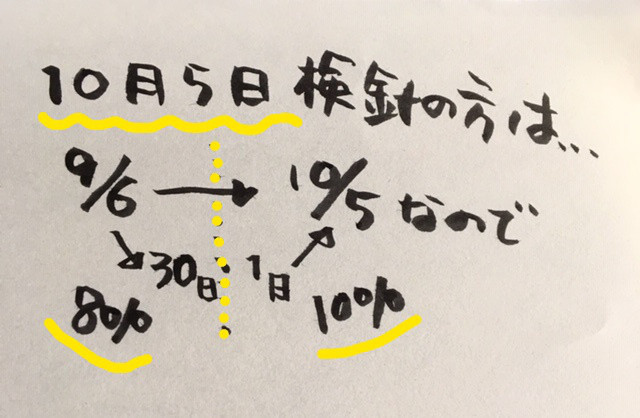 10月5日 検針の方は...
9/6 → 10/5 なので
30日 1日
8% 10%